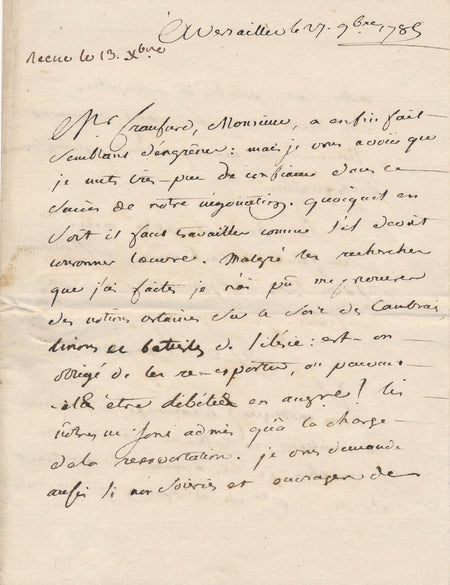 A Versailles le 27. 9bre 1785
Recue le 13. Xbre
Mr Craufurd, Monsieur, a enfin fait
semblant d'engréner: mais je vous avoüe que
je mets très-peu de confiance dans le
succès de notre négociation. quoiqu'il en
soit il faut travailler comme s'il devoit
couronner l'œuvre. Malgré les recherches
que j'ai faites je n'ai pû me procurer
des notions certaines sur le sort des Cambrais
linons et batistes de Silésie: est-on
obligé de les réexporter, ou peuvent
-ils être débités en angre? les
nôtres ne sont admis qu'à la charge
de la réexportation. je vous demande
aussi si nos soieries et ouvrages de